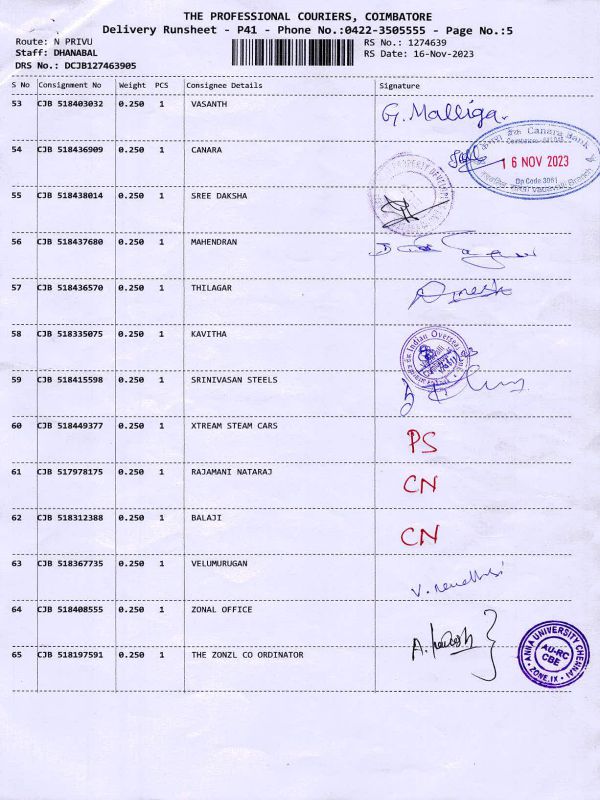 THE PROFESSIONAL COURIERS, COIMBATORE
Delivery Runsheet - P41 - Phone No.:0422-3505555 - Page No.:5
Route: N PRIVU RS No.: 1274639
Staff: DHANABAL RS Date: 16-Nov-2023
DRS No.: DCJB127463905
S No Consignment No Weight PCS Consignee Details Signature
53 CJB 518403032 0.250 1 VASANTH G. Malliga.
54 CJB 518436909 0.250 1 CANARA
Canara Bank
16 NOV 2023
Dp Code 3061
55 CJB 518438014 0.250 1 SREE DAKSHA
56 CJB 518437680 0.250 1 MAHENDRAN
57 CJB 518436570 0.250 1 THILAGAR Dinesh
58 CJB 518335075 0.250 1 KAVITHA
Indian Overseas
59 CJB 518415598 0.250 1 SRINIVASAN STEELS
60 CJB 518449377 0.250 1 XTREAM STEAM CARS PS
61 CJB 517978175 0.250 1 RAJAMANI NATARAJ CN
62 CJB 518312388 0.250 1 BALAJI CN
63 CJB 518367735 0.250 1 VELUMURUGAN
64 CJB 518408555 0.250 1 ZONAL OFFICE
65 CJB 518197591 0.250 1 THE ZONZL CO ORDINATOR
ANNA UNIVERSITY CHENNAI
AU-RC
CBE
ZONE.IX